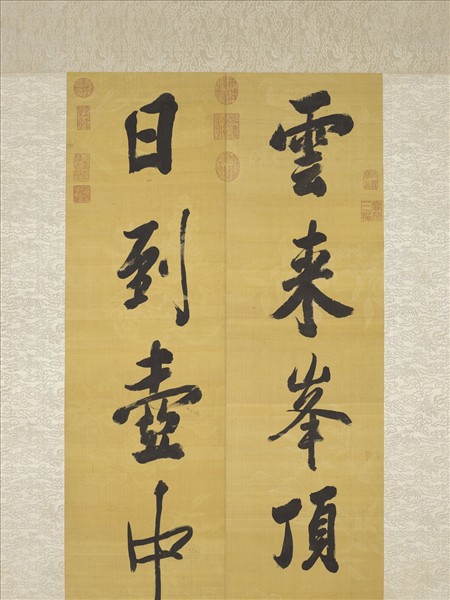 雲来峯頂
日到壺中